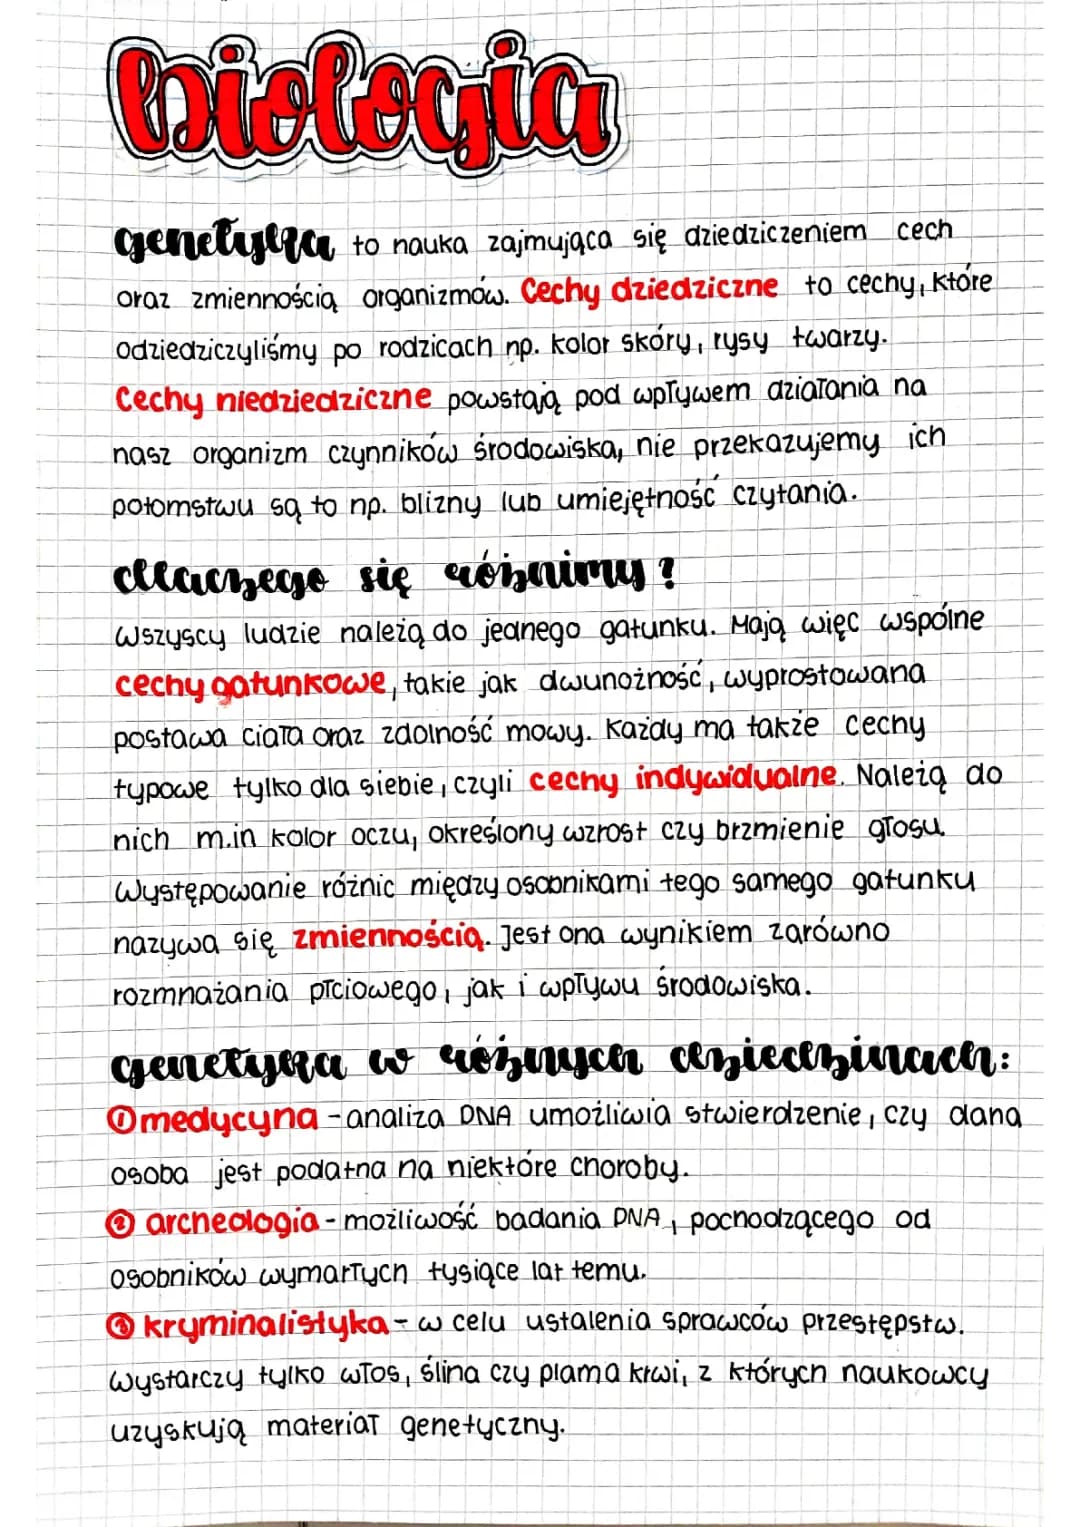 biologia
genetyka to nauka zajmująca się dziedziczeniem cech
oraz zmiennością organizmów. Cechy dziedziczne to cechy, które
odziedziczyliśmy po rodzicach np. kolor skóry, rysy twarzy.
Cechy niedziedziczne powstają pod wpływem działania na
nasz organizm czynników środowiska, nie przekazujemy ich
potomstwu są to np. blizny lub umiejętność czytania.
dlaczego się różnimy?
Wszyscy ludzie należą do jednego gatunku. Mają więc wspólne
cechy gatunkowe, takie jak dwunożność, wyprostowana
postawa ciała oraz zdolność mowy. Każdy ma także cechy
typowe tylko dla siebie, czyli cechy indywidualne. Należą do
nich m.in kolor oczu, określony wzrost czy brzmienie głosu.
Występowanie różnic między osobnikami tego samego gatunku
nazywa się zmiennością. Jest ona wynikiem zarówno
rozmnażania płciowego, jak i wpływu środowiska.
genetyka w różnych dziedzinach:
① medycyna - analiza DNA umożliwia stwierdzenie, czy dana
osoba jest podatna na niektóre choroby.
② archeologia - możliwość badania DNA, pochodzącego od
osobników wymarłych tysiące lat temu.
③ kryminalistyka - w celu ustalenia sprawców przestępstw.
wystarczy tylko włos, ślina czy plama krwi, z których naukowcy
uzyskują materiał genetyczny.